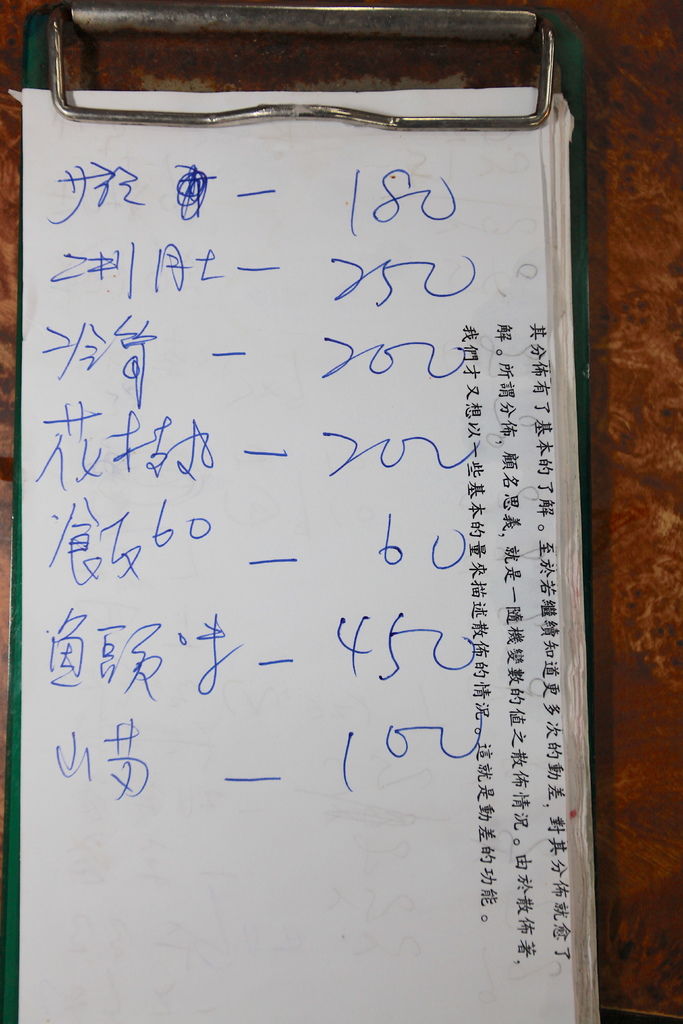 — 180
肚 — 250
冷筍 — 200
花枝 — 200
飯60 — 60
魚頭 — 450
山 — 100
其分佈有了基本的了解。至於若繼續知道更多次的動差，對其分佈就愈了
解。所謂分佈，顧名思義，就是一隨機變數的值之散佈情況。由於散佈者，
我們才又想以一些基本的量來描述散佈的情況。這就是動差的功能。